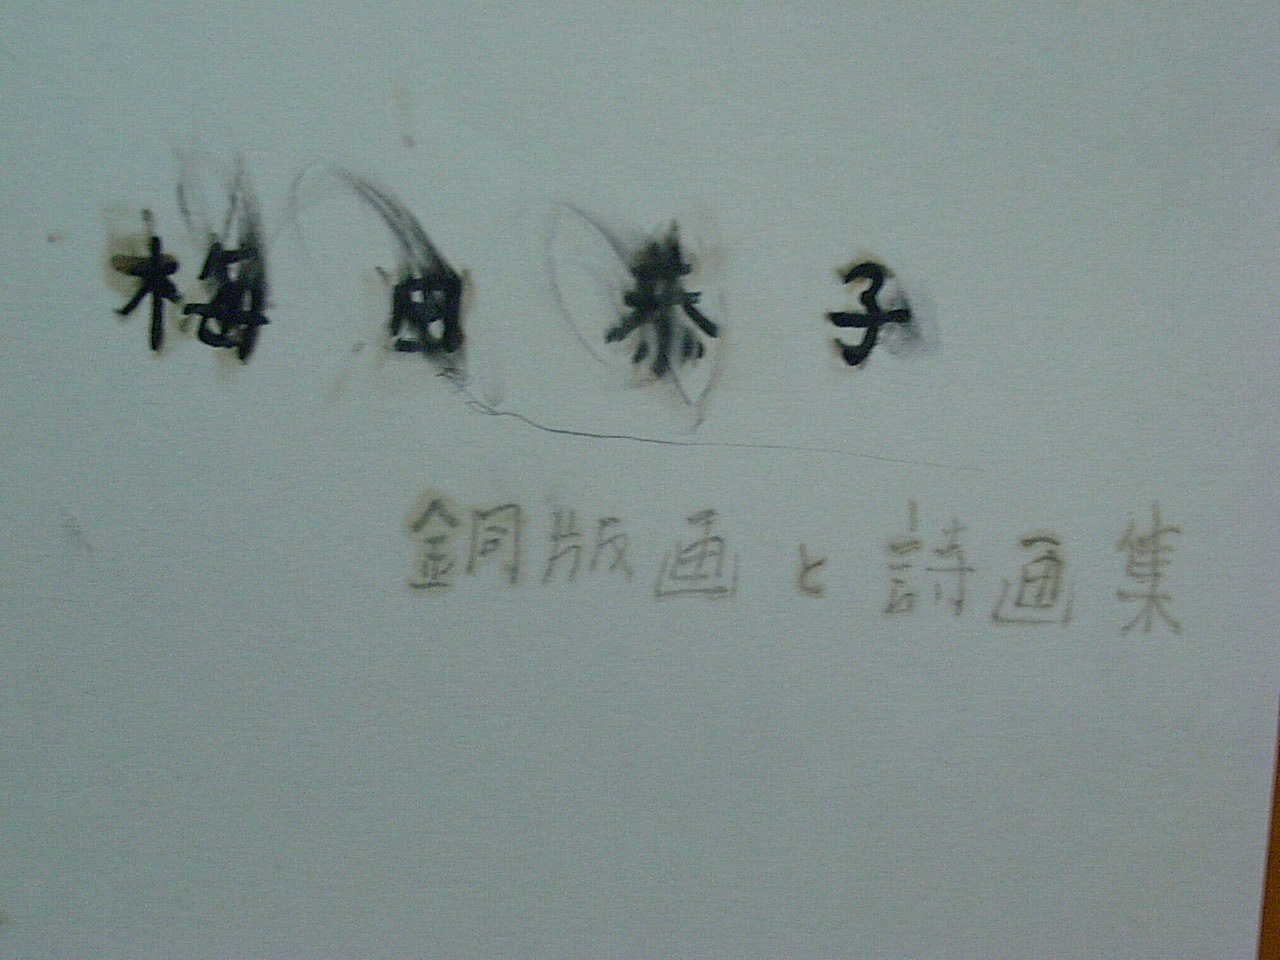 梅田恭子
銅版画と詩画集